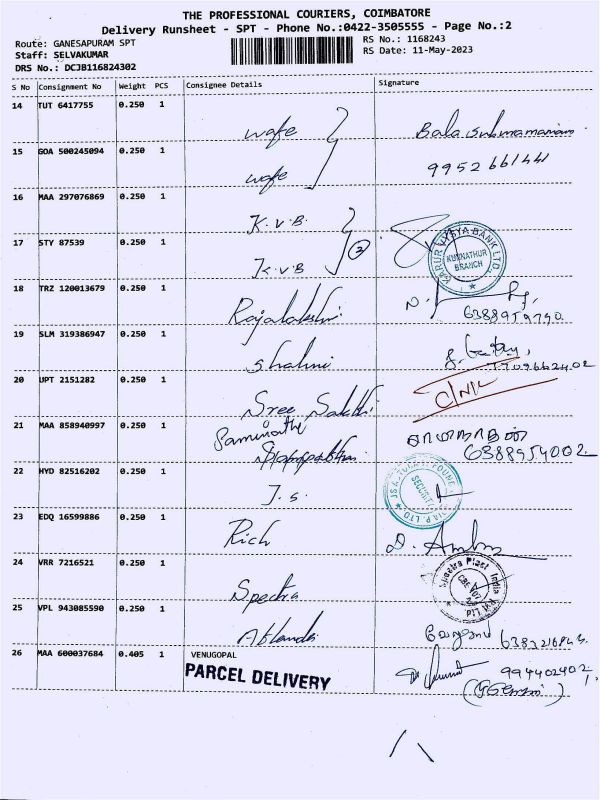 THE PROFESSIONAL COURIERS, COIMBATORE
Delivery Runsheet - SPT - Phone No.:0422-3505555 - Page No.:2
Route: GANESAPURAM SPT
RS No.: 1168243
Staff: SELVAKUMAR
RS Date: 11-May-2023
DRS No.: DCJB116824302
S No Consignment No Weight PCS Consignee Details Signature
14 TUT 6417755 0.250 1 wafe Bala Submamaniam
15 GOA 500245094 0.250 1 wafe
16 MAA 297076869 0.250 1 K.V.B.
17 STY 87539 0.250 1 K.V.B 2
KARUR VYSYA BANK LTD. KUNNATHUR BRANCH
18 TRZ 120013679 0.250 1 Rajalakshmi 6388959790
19 SLM 319386947 0.250 1 Shalini
20 UPT 2151282 0.250 1 Sree Sakthi
21 MAA 858940997 0.250 1 Saminathi
6388954002
22 HYD 82516202 0.250 1 J.S.
SECURITY
23 EDQ 16599886 0.250 1 Rich
24 VRR 7216521 0.250 1 Spectra
Spectra Plast India Pvt Ltd
25 VPL 943085590 0.250 1
26 MAA 600037684 0.405 1 VENUGOPAL 994402402
PARCEL DELIVERY